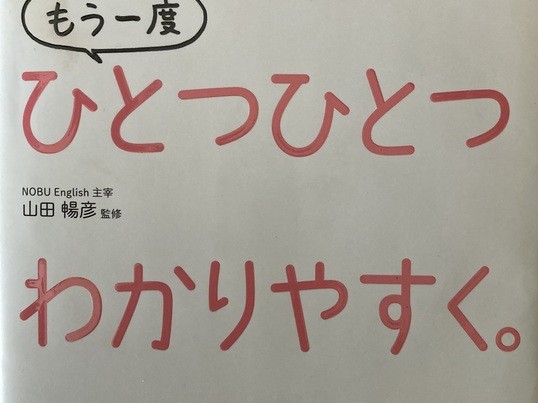 もう一度
ひとつひとつ
NOBU English 主宰
山田 暢彦 監修
わかりやすく。